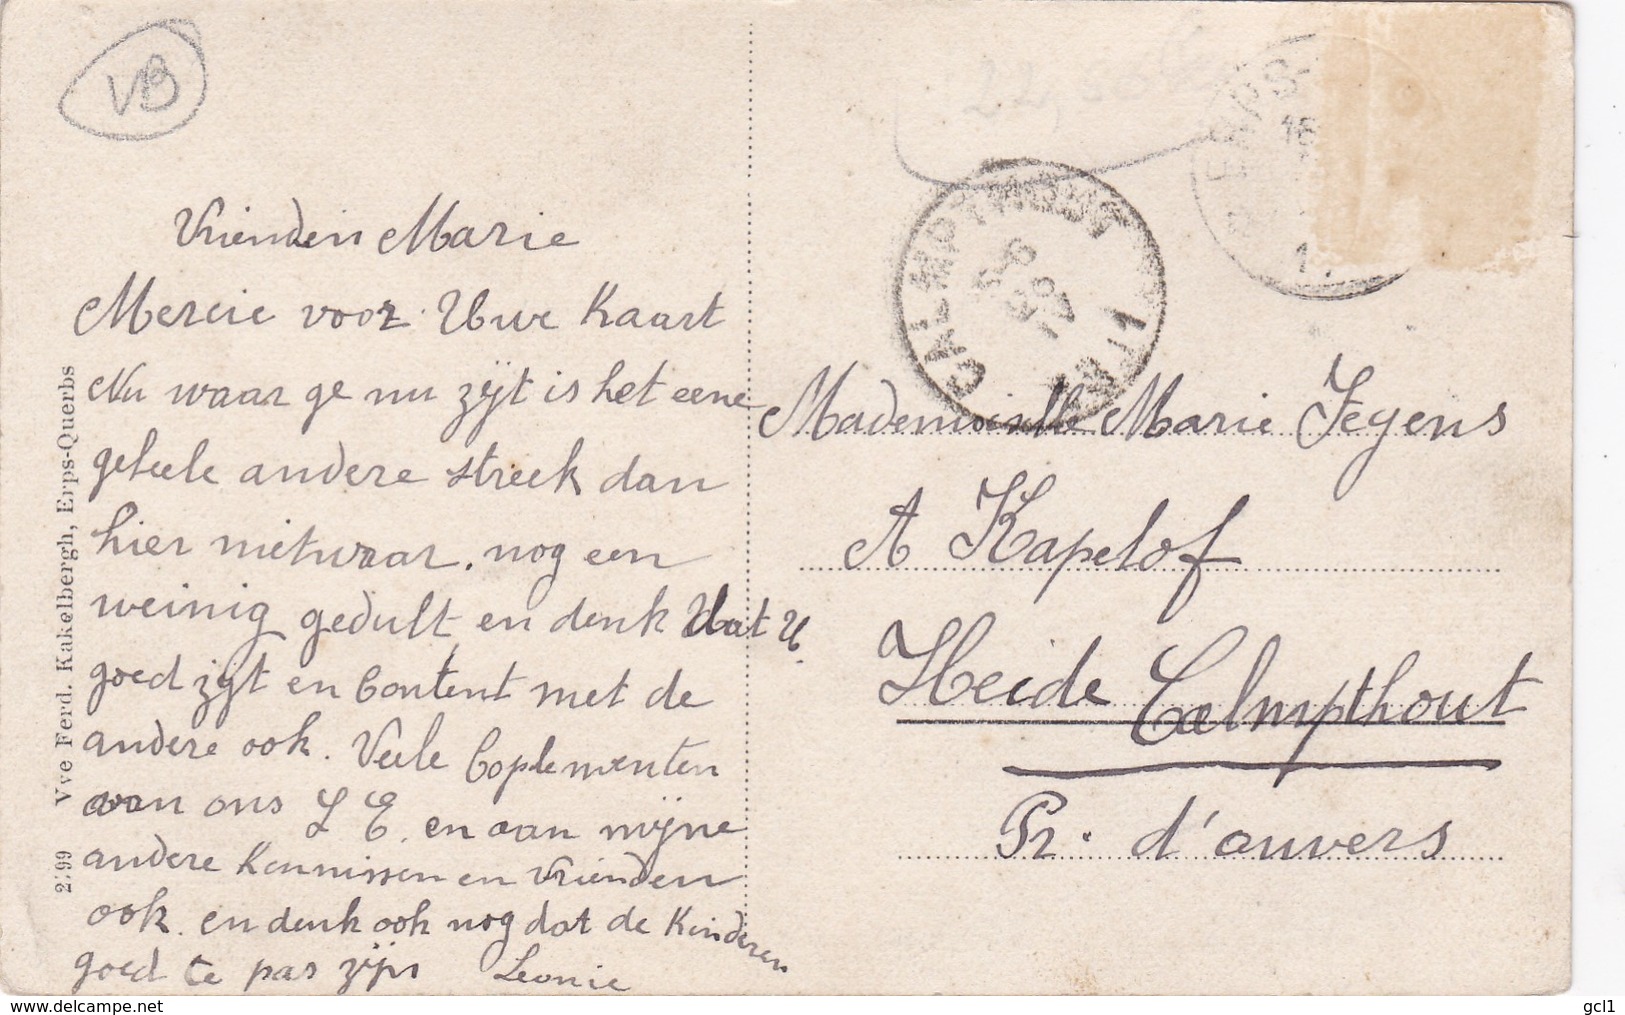 VB
Vrienden Marie
Mercie voor Uwe Kaart
Nu waar ge nu zijt is het eene
geheele andere streek dan
hier nietwaar. nog een
weinig gedult en denk dat U
goed zijt en Content met de
andere ook. Veele Coplementen
van ons L E. en aan mijne
andere Kennissen en Vrienden
ook. en denk ook nog dat de Kinderen
goed te pas zijn Leonie
Vve Ferd. Kakelbergh, Erps-Querbs
2799
ERPS-
CALMPTHOUT
Mademoiselle Marie Jegens
A Kapelof
Heide Calmpthout
Pr. d'anvers
www.delcampe.net
gcl1